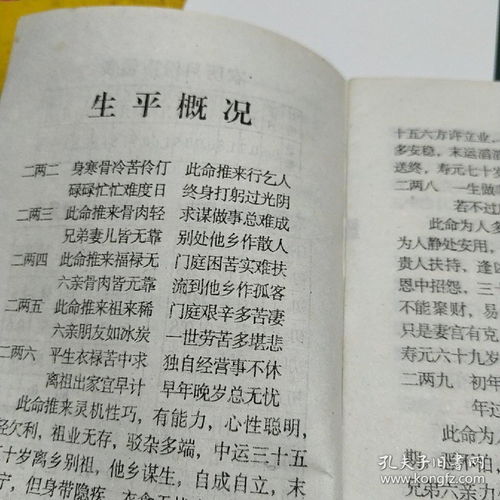 生平概况
二两二 身寒骨冷苦伶仃 此命推来行乞人
碌碌忙忙难度日 终身打躬过光阴
二两三 此命推来骨肉轻 求谋做事总难成
兄弟妻儿皆无靠 别处他乡作散人
二两四 此命推来福禄无 门庭困苦实难扶
六亲骨肉皆无靠 流到他乡作孤客
二两五 此命推来祖来稀 门庭艰辛多苦妻
六亲朋友如冰炭 一世劳苦多堪悲
二两六 平生衣禄苦中求 独自经营事不休
离祖出家宜早计 早年晚岁总无忧
此命推来灵机性巧，有能力，心性聪明，
轻欠利，祖业无存，驳杂多端，中运三十五
十岁离乡别祖，他乡谋生，自成自立，末
宁，但身带隐疾，衣食无
十五六方许立业，
多安稳，末运滔滔
送终，寿元七十岁
二两八 一生做
若不过
此命为人多
为人静处安用，
贵人扶持，逢
恩中招怨，三十
不能聚财，易
只是妻宫有克，
寿元六十九岁
二两九 初年
年过
此命为人
期，恶不怕，
兄弟六亲力
孔夫子旧书网
kongfz.com